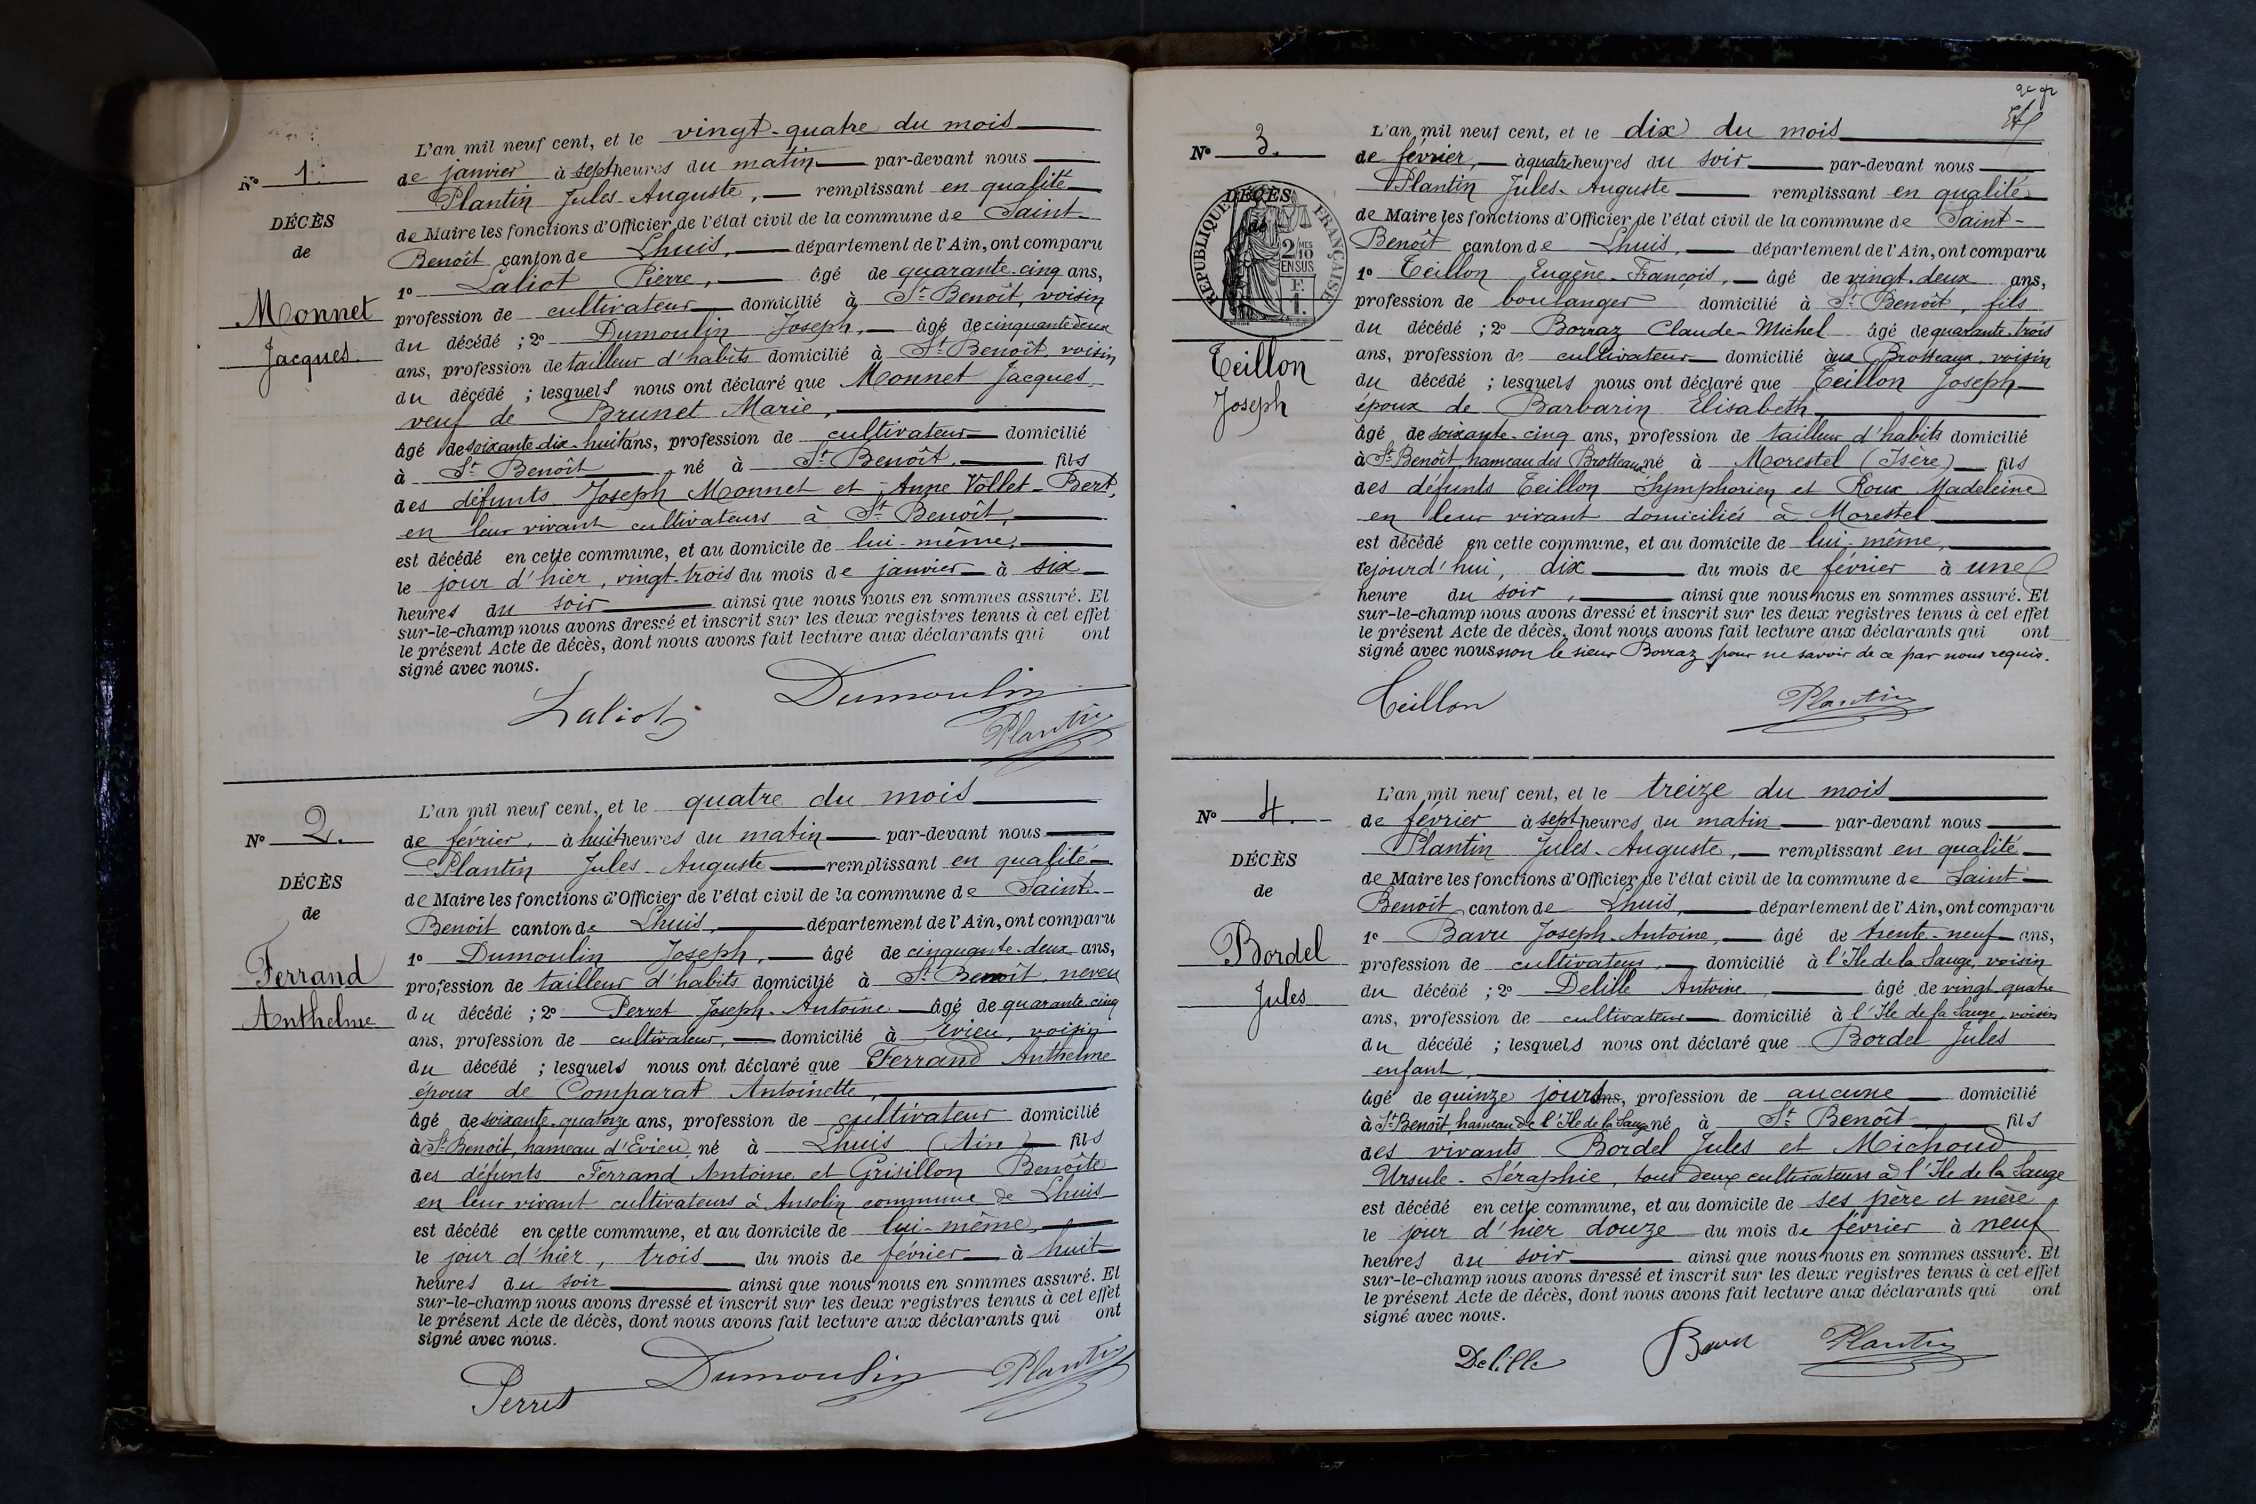 N° 1.
DÉCÈS
de
Monnet
Jacques
L'an mil neuf cent, et le vingt-quatre du mois
de janvier à sept heures du matin par-devant nous
Plantin Jules-Auguste, remplissant en qualité
de Maire les fonctions d'Officier de l'état civil de la commune de Saint-
Benoît canton de Lhuis, département de l'Ain, ont comparu
1° Laliot Pierre, âgé de quarante-cinq ans,
profession de cultivateur domicilié à St Benoît, voisin
du décédé ; 2° Dumoulin Joseph, âgé de cinquante deux
ans, profession de tailleur d'habits domicilié à St Benoît, voisin
du décédé ; lesquels nous ont déclaré que Monnet Jacques
veuf de Brunet Marie,
âgé de soixante-dix-huit ans, profession de cultivateur domicilié
à St Benoît né à St Benoît, fils
des défunts Joseph Monnet et Anne Vollet-Bert,
en leur vivant cultivateurs à St Benoît,
est décédé en cette commune, et au domicile de lui-même,
le jour d'hier, vingt-trois du mois de janvier à six
heures du soir ainsi que nous nous en sommes assuré. Et
sur-le-champ nous avons dressé et inscrit sur les deux registres tenus à cet effet
le présent Acte de décès, dont nous avons fait lecture aux déclarants qui ont
signé avec nous.
Laliot Dumoulin
Plantin
N° 2.
DÉCÈS
de
Ferrand
Anthelme
L'an mil neuf cent, et le quatre du mois
de février, à huit heures du matin par-devant nous
Plantin Jules-Auguste remplissant en qualité
de Maire les fonctions d'Officier de l'état civil de la commune de Saint-
Benoît canton de Lhuis, département de l'Ain, ont comparu
1° Dumoulin Joseph, âgé de cinquante-deux ans,
profession de tailleur d'habits domicilié à St Benoît, neveu
du décédé ; 2° Perret Joseph-Antoine âgé de quarante cinq
ans, profession de cultivateur, domicilié à Evieu, voisin
du décédé ; lesquels nous ont déclaré que Ferrand Anthelme
époux de Comparat Antoinette,
âgé de soixante-quatorze ans, profession de cultivateur domicilié
à St Benoît, hameau d'Evieu né à Lhuis (Ain) fils
des défunts Ferrand Antoine et Grisillon Benoîte
en leur vivant cultivateurs à Ansolin commune de Lhuis
est décédé en cette commune, et au domicile de lui-même,
le jour d'hier, trois du mois de février à huit
heures du soir ainsi que nous nous en sommes assuré. Et
sur-le-champ nous avons dressé et inscrit sur les deux registres tenus à cet effet
le présent Acte de décès, dont nous avons fait lecture aux déclarants qui ont
signé avec nous.
Perret Dumoulin Plantin
N° 3.
DÉCÈS
de
RÉPUBLIQUE FRANÇAISE
2 MES
10
EN SUS
F.
1.
Teillon
Joseph
L'an mil neuf cent, et le dix du mois
de février, à quatre heures du soir par-devant nous
Plantin Jules-Auguste remplissant en qualité
de Maire les fonctions d'Officier de l'état civil de la commune de Saint-
Benoît canton de Lhuis, département de l'Ain, ont comparu
1° Teillon Eugène-François, âgé de vingt-deux ans,
profession de boulanger domicilié à St Benoît, fils
du décédé ; 2° Borraz Claude-Michel âgé de quarante-trois
ans, profession de cultivateur domicilié aux Brotteaux, voisin
du décédé ; lesquels nous ont déclaré que Teillon Joseph
époux de Barbarin Elisabeth
âgé de soixante-cinq ans, profession de tailleur d'habits domicilié
à St Benoît, hameau des Brotteaux né à Morestel (Isère) fils
des défunts Teillon Symphorien et Roux Madeleine
en leur vivant domiciliés à Morestel
est décédé en cette commune, et au domicile de lui-même,
cejourd'hui, dix du mois de février à une
heure du soir, ainsi que nous nous en sommes assuré. Et
sur-le-champ nous avons dressé et inscrit sur les deux registres tenus à cet effet
le présent Acte de décès, dont nous avons fait lecture aux déclarants qui ont
signé avec nous non le sieur Borraz pour ne savoir de ce par nous requis.
Teillon Plantin
N° 4.
DÉCÈS
de
Bordel
Jules
L'an mil neuf cent, et le treize du mois
de février à sept heures du matin par-devant nous
Plantin Jules-Auguste, remplissant en qualité
de Maire les fonctions d'Officier de l'état civil de la commune de Saint-
Benoît canton de Lhuis, département de l'Ain, ont comparu
1° Bavu Joseph-Antoine, âgé de trente-neuf ans,
profession de cultivateur, domicilié à l'Ile de la Sauge, voisin
du décédé ; 2° Delille Antoine âgé de vingt quatre
ans, profession de cultivateur domicilié à l'Ile de la Sauge, voisin
du décédé ; lesquels nous ont déclaré que Bordel Jules
enfant,
âgé de quinze jours ans, profession de aucune domicilié
à St Benoît hameau de l'Ile de la Sauge né à St Benoît fils
des vivants Bordel Jules et Michoud
Ursule-Séraphie, tous deux cultivateurs à l'Ile de la Sauge
est décédé en cette commune, et au domicile de ses père et mère
le jour d'hier douze du mois de février à neuf
heures du soir ainsi que nous nous en sommes assuré. Et
sur-le-champ nous avons dressé et inscrit sur les deux registres tenus à cet effet
le présent Acte de décès, dont nous avons fait lecture aux déclarants qui ont
signé avec nous.
Delille Bavu Plantin